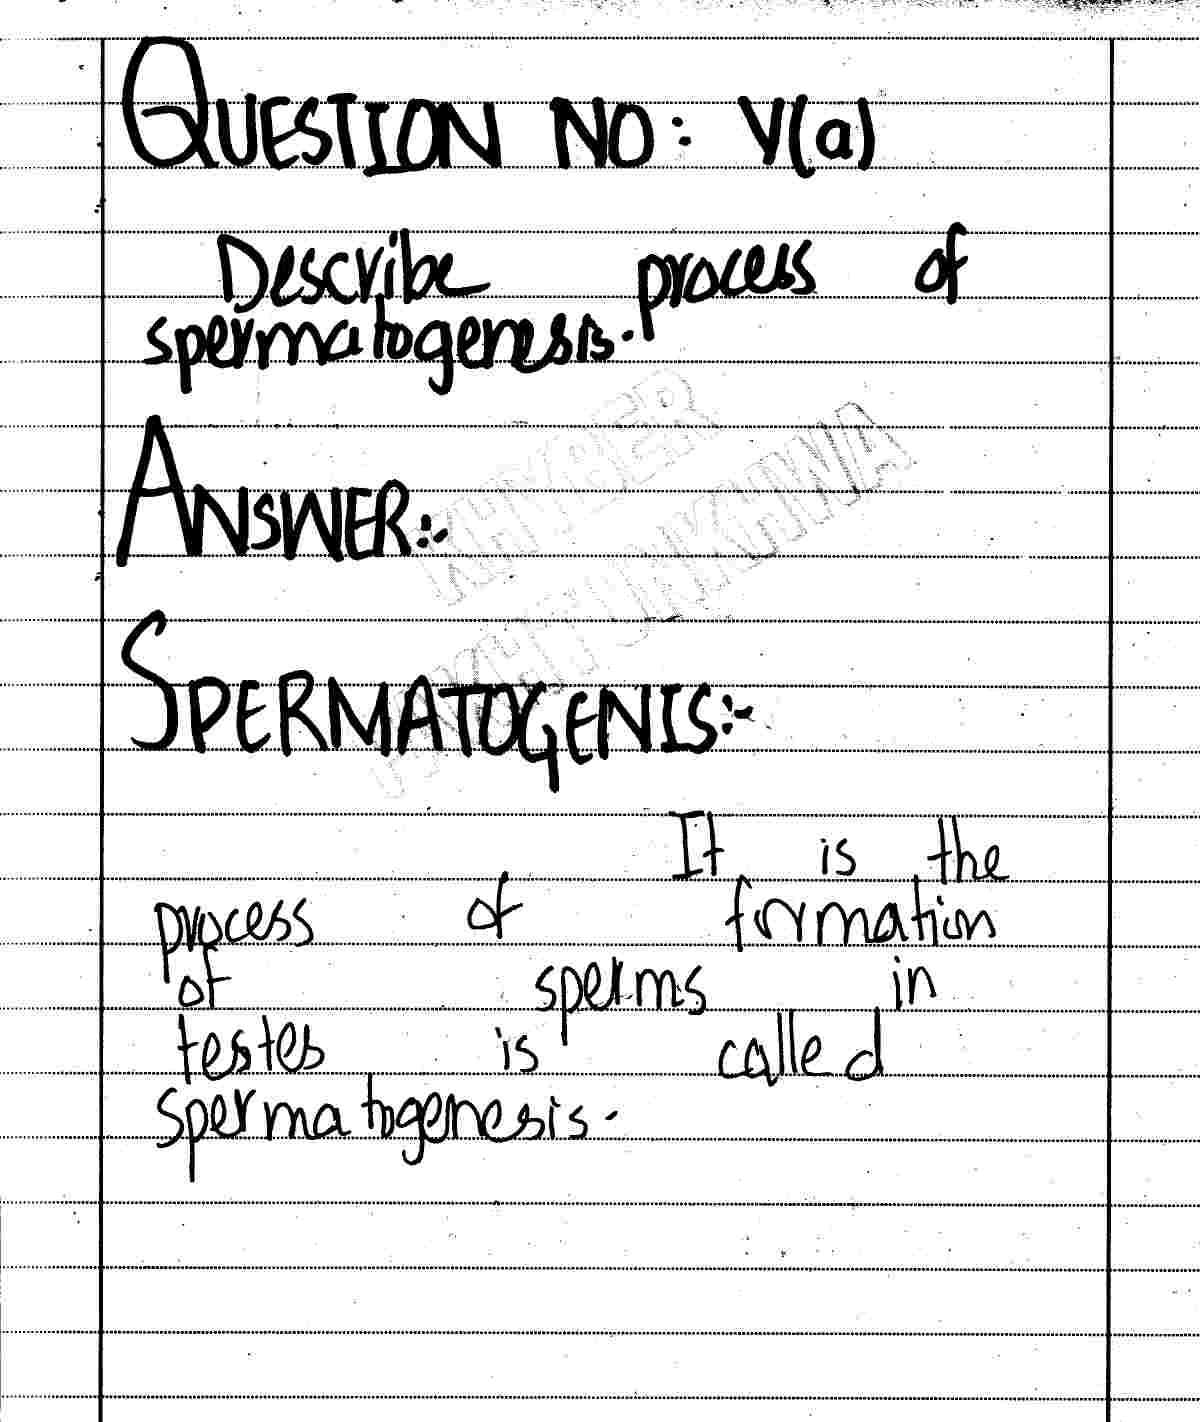 QUESTION NO: V(a)
Describe process of
spermatogenesis.
ANSWER:-
KHYBER
PAKHTUNKHWA
SPERMATOGENIS:-
It is the
process of formation
of sperms in
testes is called
spermatogenesis.